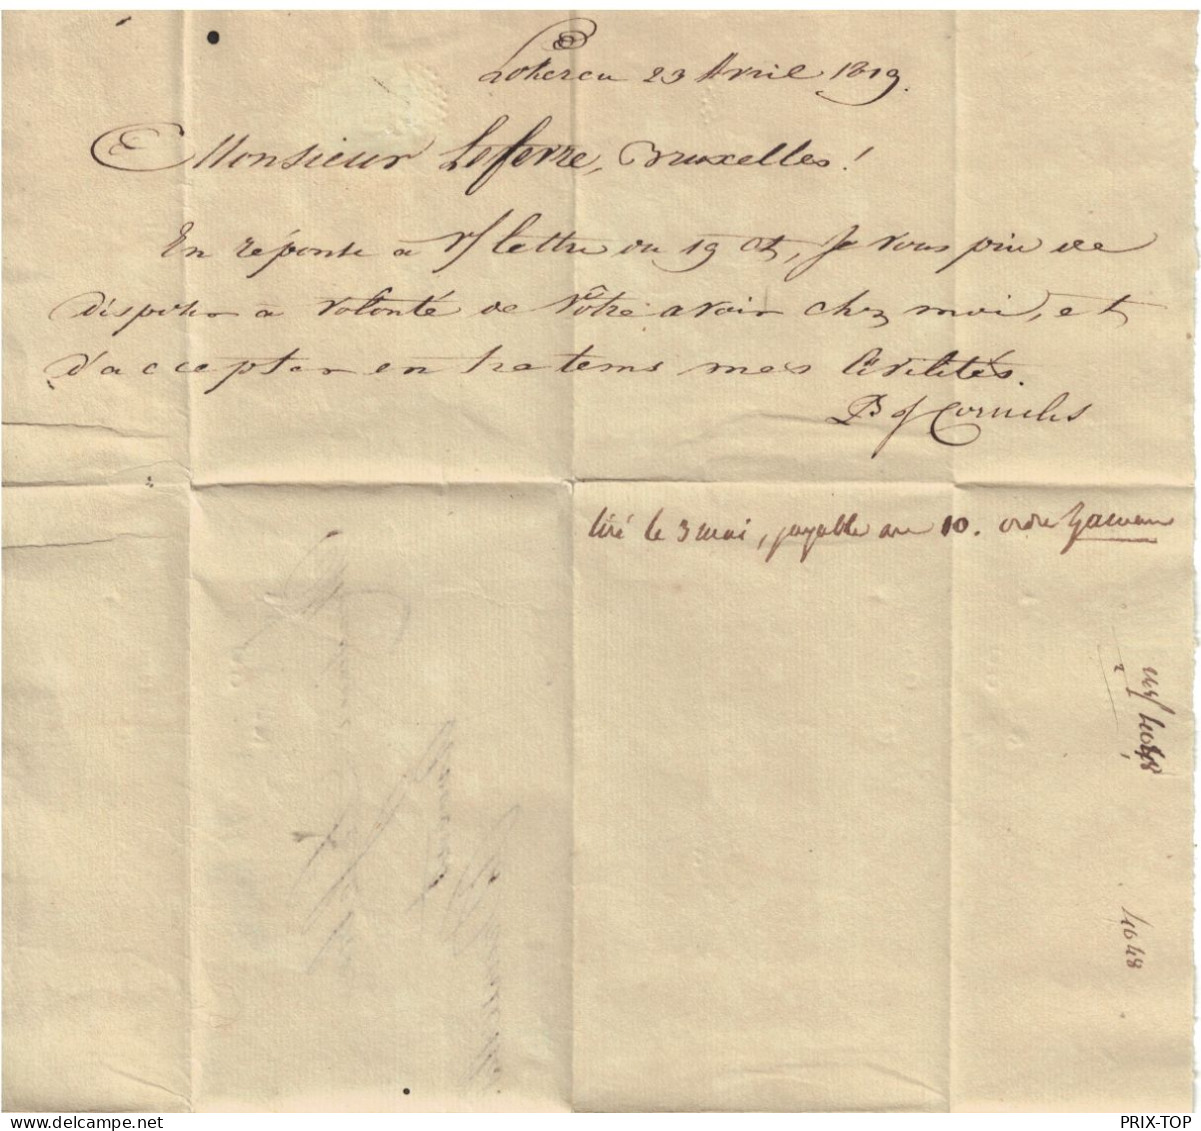 Lokeren 23 Avril 1819.
Monsieur Lefevre, Bruxelles!
En réponse à v/ lettre du 19 Ct, Je vous prie de
disposer à volonté de Vôtre avoir chez moi, et
d'accepter en tre tems mes Civilités.
P J Cornelis
tiré le 3 mai, payable au 10. ordre
4048
4048
PRIX-TOP